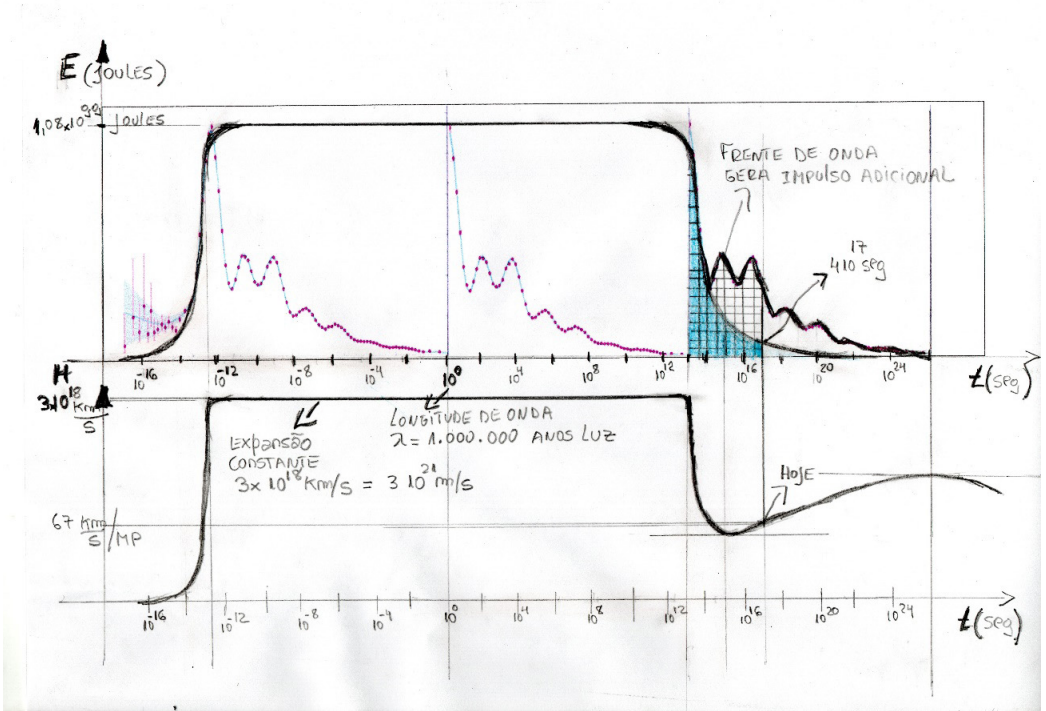 E (JOULES)
1,08x10⁹⁹ joules
FRENTE DE ONDA
GERA IMPULSO ADICIONAL
17
410 seg
10⁻¹⁶ 10⁻¹² 10⁻⁸ 10⁻⁴ 10⁰ 10⁴ 10⁸ 10¹² 10¹⁶ 10²⁰ 10²⁴
t(seg)
H
3x10¹⁸ Km/S
EXPANSÃO
CONSTANTE
3x10¹⁸ Km/s = 3 10²¹ m/s
LONGITUDE DE ONDA
λ= 1.000.000 ANOS LUZ
HOJE
67 Km/S/MP
10⁻¹⁶ 10⁻¹² 10⁻⁸ 10⁻⁴ 10⁰ 10⁴ 10⁸ 10¹² 10¹⁶ 10²⁰ 10²⁴
t(seg)